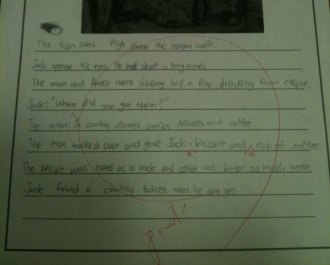 The sun was high above the canyon walls.
Jack opened his eyes. He had slept a long time.
The man and were sitting by a fire drinking from cups.
Jack: "Where did you get them?"
The man: "A cowboy always carries biscuits and coffee."
The man walked over and gave Jack a biscuit and a cup of coffee
The biscuit was hard as a rock and coffee was bitter as water
Jack found a cowboy takes what he can get
good!